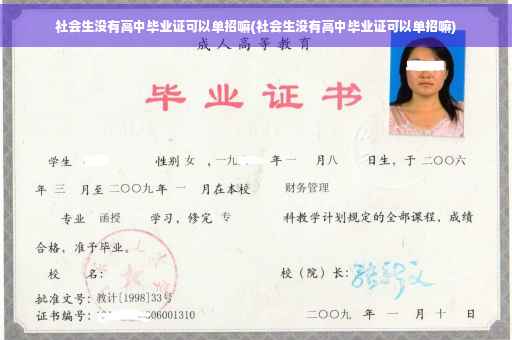 社会生没有高中毕业证可以单招嘛(社会生没有高中毕业证可以单招嘛)
成人高等教育
毕业证书
学生 性别 女 ，一九 年 一 月八 日生，于 二〇〇六
年 三 月至 二〇〇九 年 一 月在本校 财务管理
专业 函授 学习，修完 专 科教学计划规定的全部课程，成绩
合格，准予毕业。
校 名： 校（院）长：
批准文号：教计[1998]33号
证书编号： 06001310 二〇〇九 年 一 月 十 日